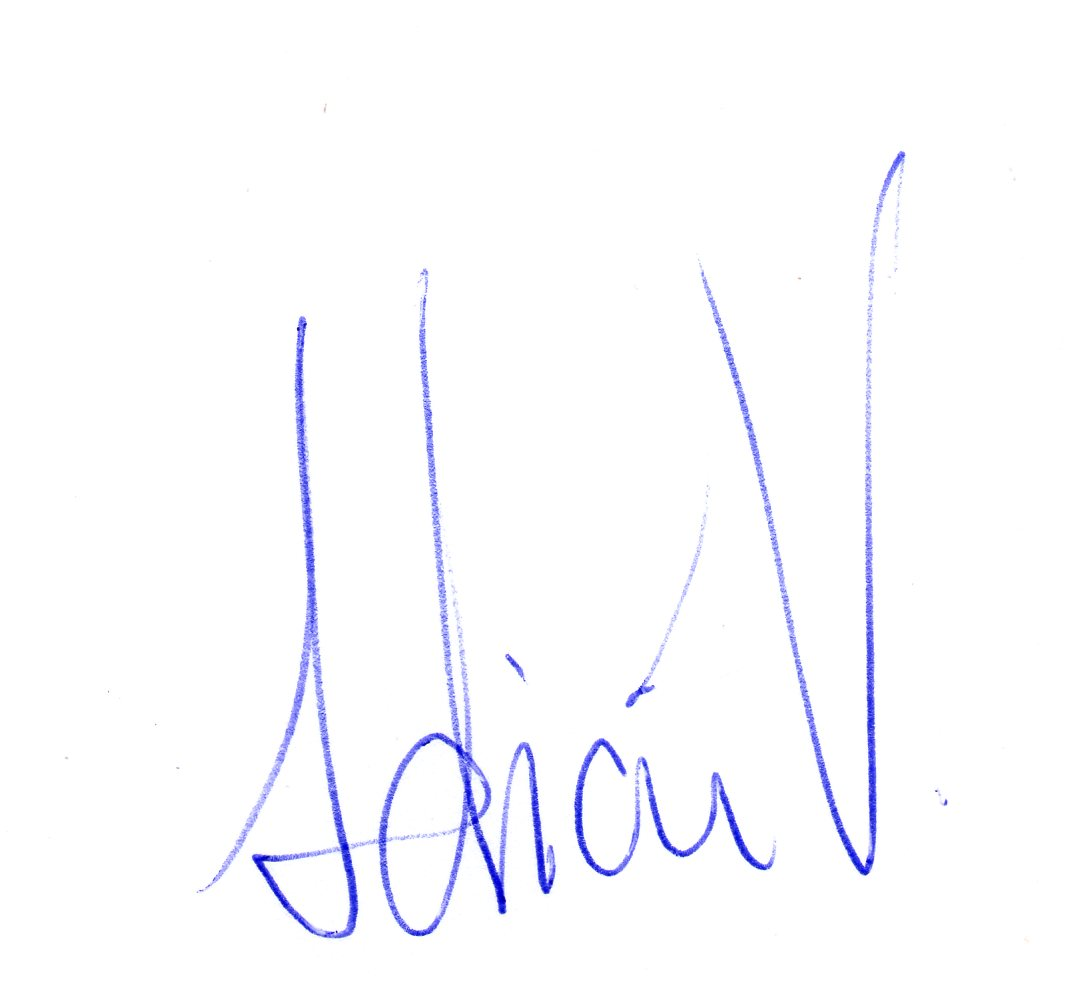 Adrián V.